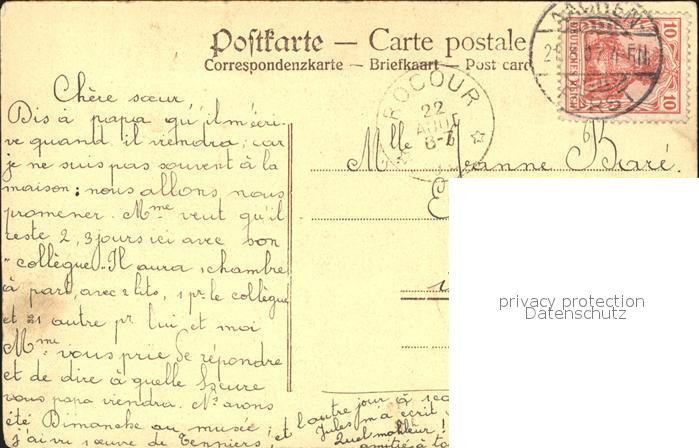 Postkarte — Carte postale
Correspondenzkarte — Briefkaart — Post card
AACHEN
10 10
DEUTSCHES REICH
ROCOUR
22
AOUT
6-7
Chère sœur,
Dis à papa qu'il m'écri-
ve quand il viendra; car
je ne suis pas souvent à la
maison; nous allons nous
promener. Mme veut qu'il
reste 2, 3 jours ici avec son
"collègue". Il aura 1 chambre
à part, avec 2 lits, 1 pr. le collègue
et autre pr lui, et moi
Mme vous prie de répondre
et de dire à quelle heure
vous papa viendra. Ns avons
été Dimanche au musée; et
j'ai vu œuvre de Tenniers, et
l'autre jour à
Jules m'a écrit
Quel malheur!
amitié à
Mlle Jeanne Baré.
privacy protection
Datenschutz